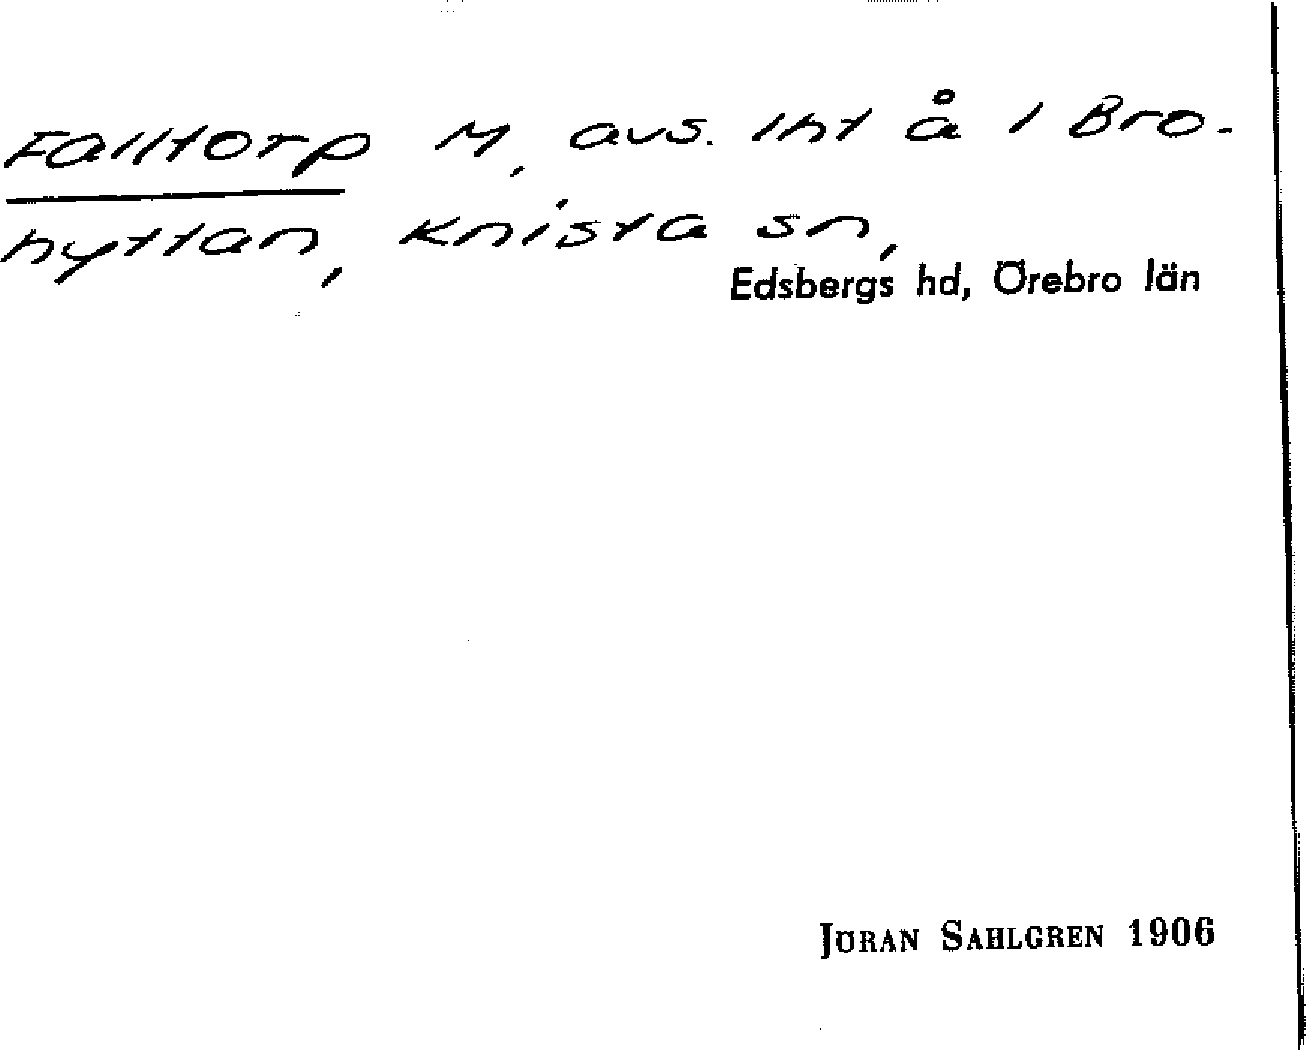 Falltorp M, avs. lht å i Bro-
hyttan, Knista sn,
Edsbergs hd, Örebro län
JÖRAN SAHLGREN 1906